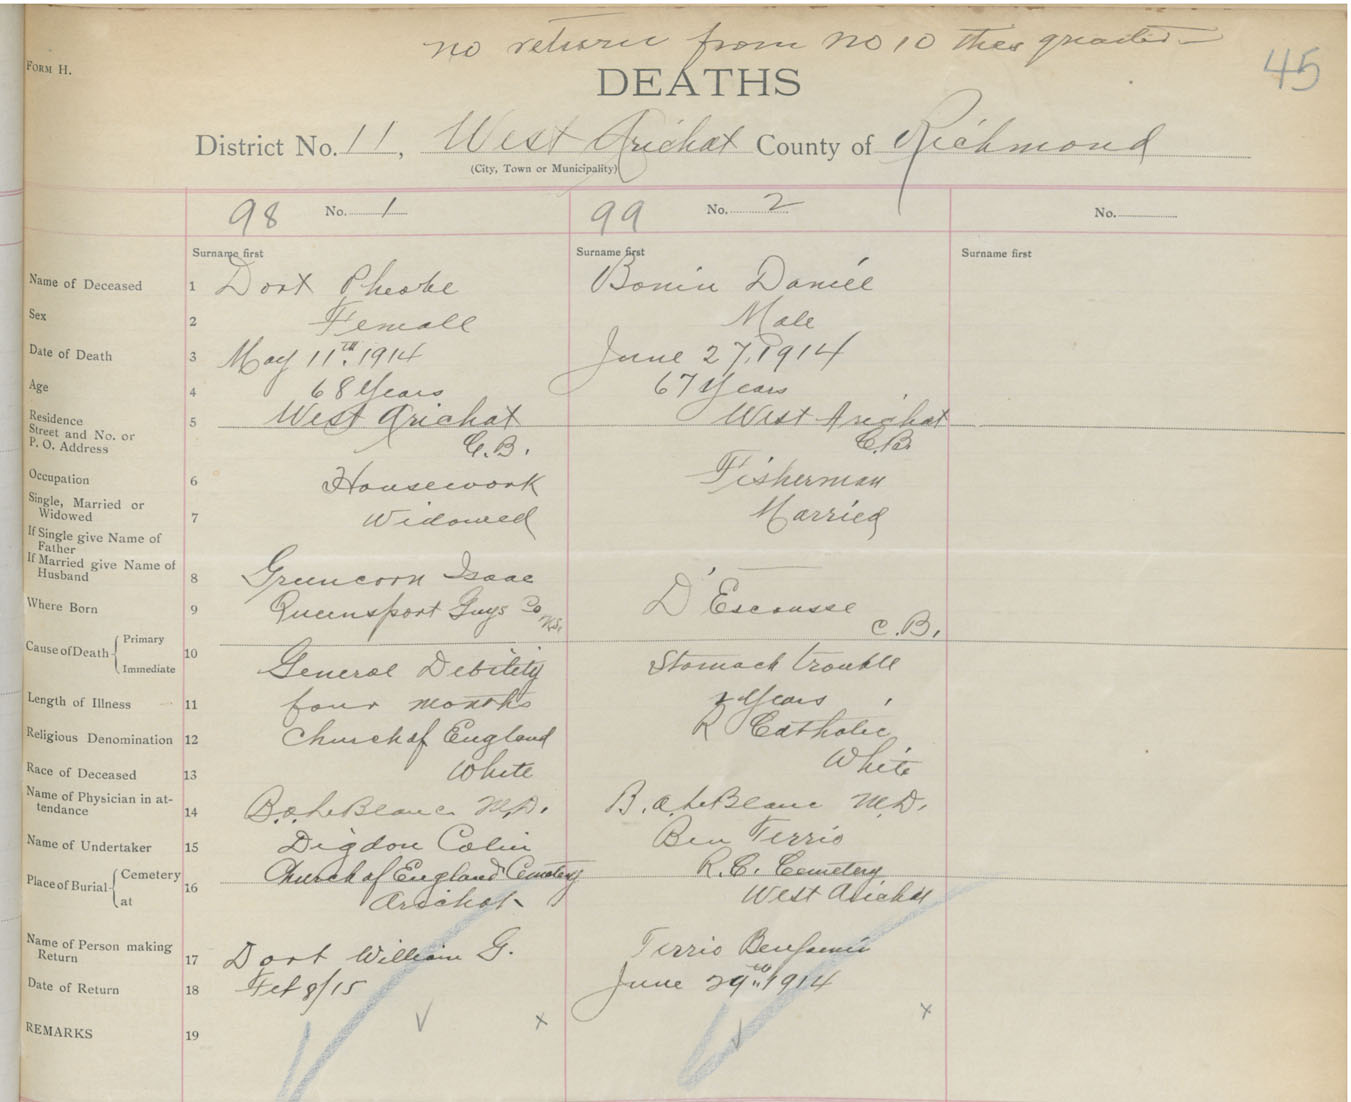 no return from No 10 this quarter
45
FORM H.
DEATHS
District No. 11, West Arichat County of Richmond
(City, Town or Municipality)
98 No. 1 99 No. 2 No.
Surname first Surname first Surname first
Name of Deceased 1 Dort Pheobe Bonin Daniel
Sex 2 Female Male
Date of Death 3 May 11th 1914 June 27, 1914
Age 4 68 Years 67 Years
Residence Street and No. or P. O. Address 5 West Arichat C.B. West Arichat C.B.
Occupation 6 Housework Fisherman
Single, Married or Widowed 7 Widowed Married
If Single give Name of Father
If Married give Name of Husband 8 Gruncorn Isaac
Where Born 9 Queensport Guys Co N.S. D'Escousse C.B.
Cause of Death { Primary Immediate 10 General Debility Stomach trouble
Length of Illness 11 four months 2 Years
Religious Denomination 12 Church of England R Catholic
Race of Deceased 13 White White
Name of Physician in attendance 14 B.A. LeBlanc M.D. B.A. LeBlanc M.D.
Name of Undertaker 15 Digdon Colin Ben Terrio
Place of Burial { Cemetery at 16 Church of England Cemetery Arichat R.C. Cemetery West Arichat
Name of Person making Return 17 Dort William G. Terrio Benjamin
Date of Return 18 Feb 8/15 June 29th 1914
REMARKS 19